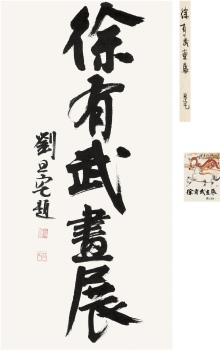 徐有武畫展
劉旦宅題
徐有武畫展
徐有武畫展